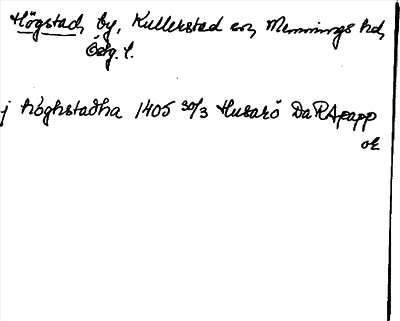 Högstad, by, Kullerstad sn, Memmings hd,
Ög. l.
j höghstadha 1405 30/3 Husarö Da RApapp
ok